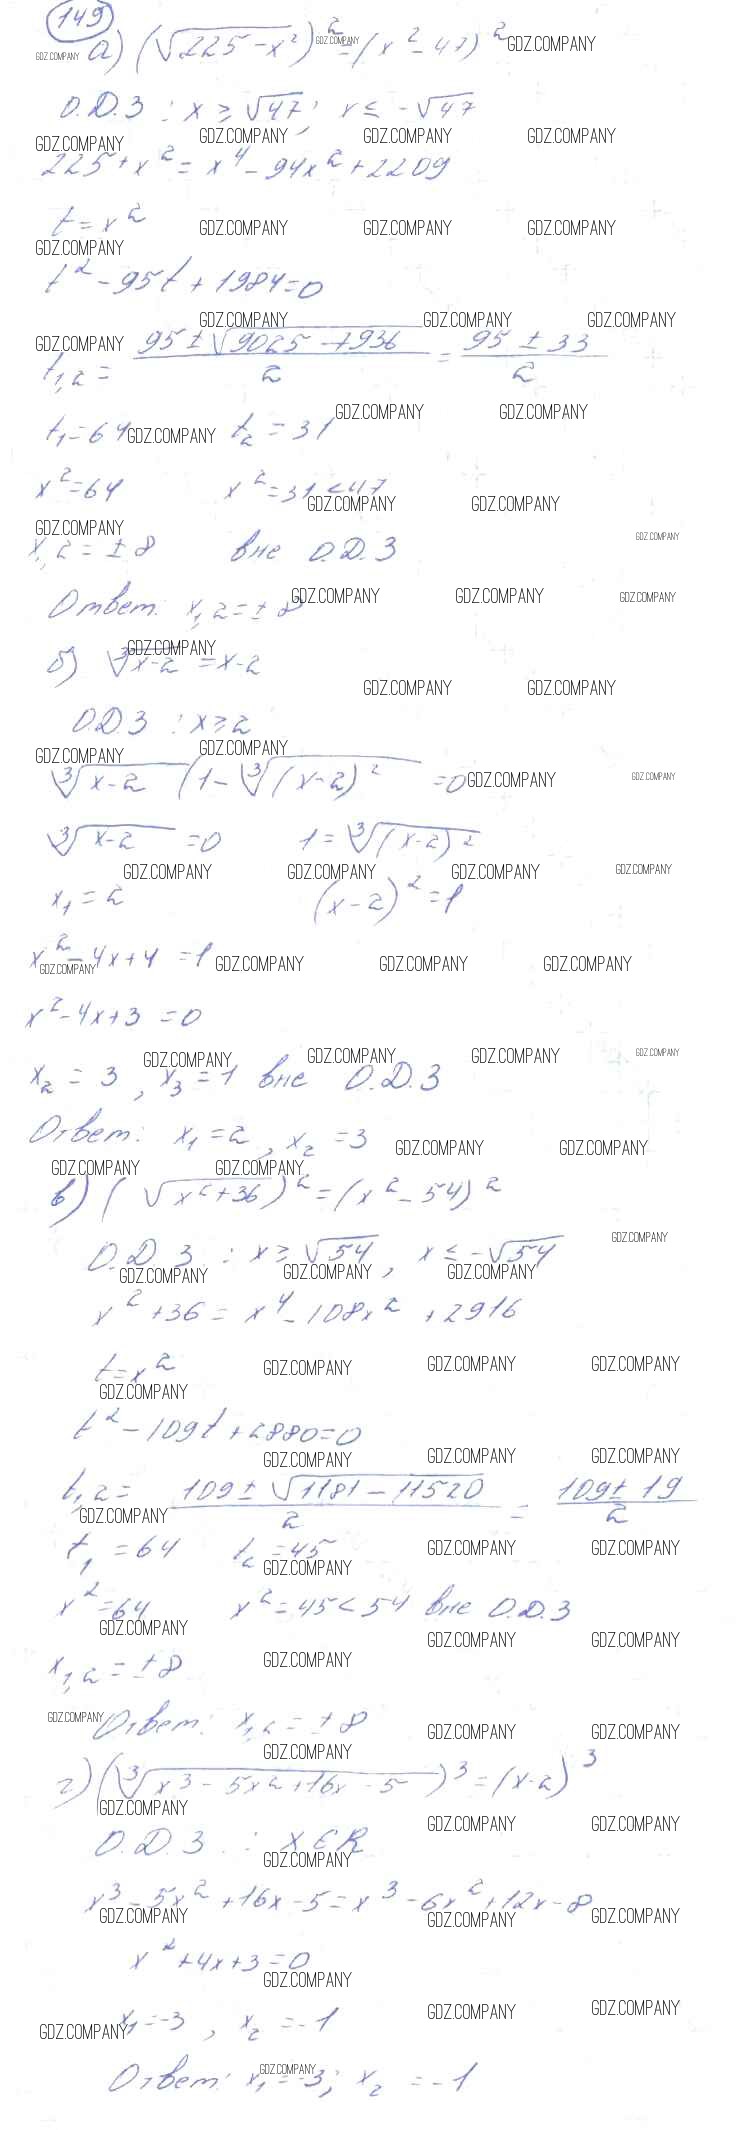 149
а) (√225-x²)² = (x²-47)²
О.Д.З : x ≥ √47; x ≤ -√47
225+x² = x⁴-94x²+2209
t = x²
t²-95t+1984=0
t₁,₂ = (95±√9025-7936)/2 = (95±33)/2
t₁=64 t₂=31
x²=64 x²=31<47
x₁,₂=±8 вне О.Д.З
Ответ: x₁,₂=±8
б) ∛x-2 = x-2
О.Д.З : x ≥ 2
∛x-2 (1-∛(x-2)² =0
∛x-2 =0 1=∛(x-2)²
x₁=2 (x-2)²=1
x²-4x+4=1
x²-4x+3=0
x₂=3, x₃=1 вне О.Д.З
Ответ: x₁=2, x₂=3
в) (√x²+36)²=(x²-54)²
О.Д.З : x ≥ √54, x ≤ -√54
x²+36=x⁴-108x²+2916
t=x²
t²-109t+2880=0
t₁,₂ = (109±√1181-11520)/2 = (109±19)/2
t₁=64 t₂=45
x²=64 x²=45<54 вне О.Д.З
x₁,₂=±8
Ответ: x₁,₂=±8
г) (∛x³-5x²+16x-5)³=(x-2)³
О.Д.З : x∈R
x³-5x²+16x-5=x³-6x²+12x-8
x²+4x+3=0
x₁=-3, x₂=-1
Ответ: x₁=-3; x₂=-1
GDZ.COMPANY